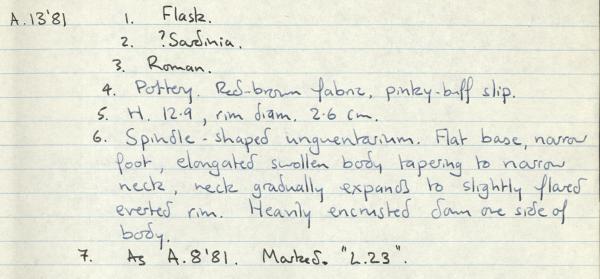 A.13'81 1. Flask.
2. ?Sardinia.
3. Roman.
4. Pottery. Red-brown fabric, pinky-buff slip.
5. H. 12.9, rim diam. 2.6 cm.
6. Spindle-shaped unguentarium. Flat base, narrow
foot, elongated swollen body tapering to narrow
neck, neck gradually expands to slightly flared
everted rim. Heavily encrusted down one side of
body.
7. As A.8'81. Marked. "L.23".